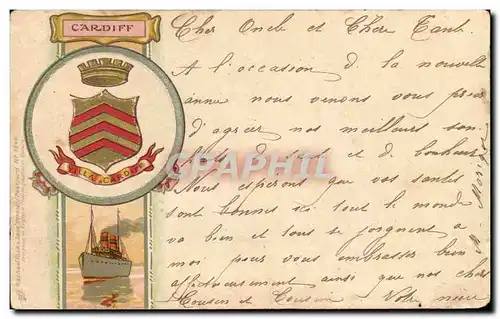 CARDIFF
VILLA CARDIFF
Cher Oncle et Chere Tante
A l'occasion de la nouvelle
année nous venons vous prier
d'agréer nos meilleurs sou-
haits de santé et de bonheur
Nous espérons que vos santés
sont bonnes ici tout le monde
va bien et tous se joignent a
moi pour vous embrasser bien
affectueusement ainsi que nos chers
Cousin et Cousine Votre nièce